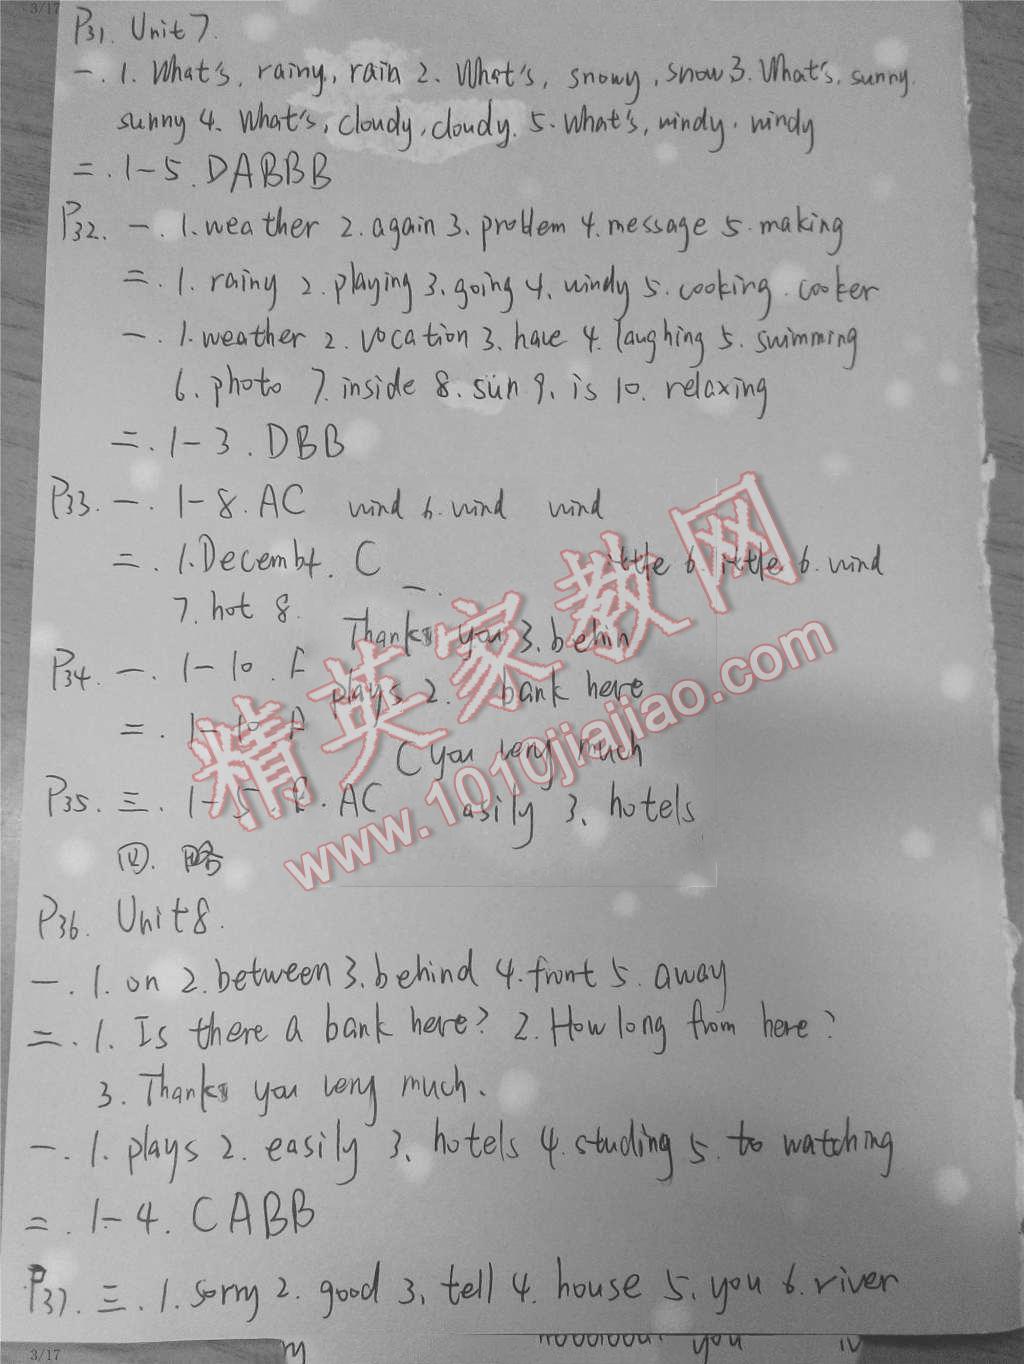 3/17
P31. Unit 7.
一. 1. What's, rainy, rain 2. What's, snowy, snow 3. What's, sunny.
sunny 4. What's, cloudy, cloudy. 5. What's, windy. windy
二. 1-5. DABBB
P32. 一. 1. weather 2. again 3. problem 4. message 5. making
二. 1. rainy 2. playing 3. going 4. windy 5. cooking. cooker
一. 1. weather 2. vocation 3. have 4. laughing 5. swimming
6. photo 7. inside 8. sun 9. is 10. relaxing
二. 1-3. DBB
P33. 一. 1-8. AC wind 6. wind wind
二. 1. Decembt. C 一. ittle 6. little 6. wind
7. hot 8. Thanks you 3. behin
P34. 一. 1-10. plays 2. bank here
二. 1-10. A C you very much
P35. 三. 1-5. AC asily 3. hotels
四. 略
精英家教网
www.1010jiajiao.com
P36. Unit 8.
一. 1. on 2. between 3. behind 4. front 5. away
二. 1. Is there a bank here? 2. How long from here?
3. Thanks you very much.
一. 1. plays 2. easily 3. hotels 4. studing 5. to watching
二. 1-4. CABB
P37. 三. 1. sorry 2. good 3. tell 4. house 5. you 6. river
3/17